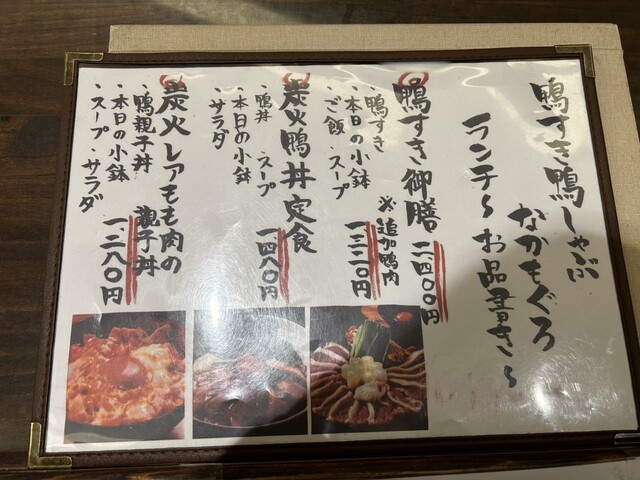 鴨すき鴨しゃぶ
なかもぐろ
ランチ〜お品書き〜
鴨すき御膳 二四〇〇円
・鴨すき ※追加鴨肉
・本日の小鉢 一、三二〇円
・ご飯・スープ
炭火鴨丼定食
・鴨丼 ・スープ 一四八〇円
・本日の小鉢
・サラダ
炭火レアもも肉の
鴨親子丼 親子丼
・本日の小鉢 一、二八〇円
・スープ・サラダ